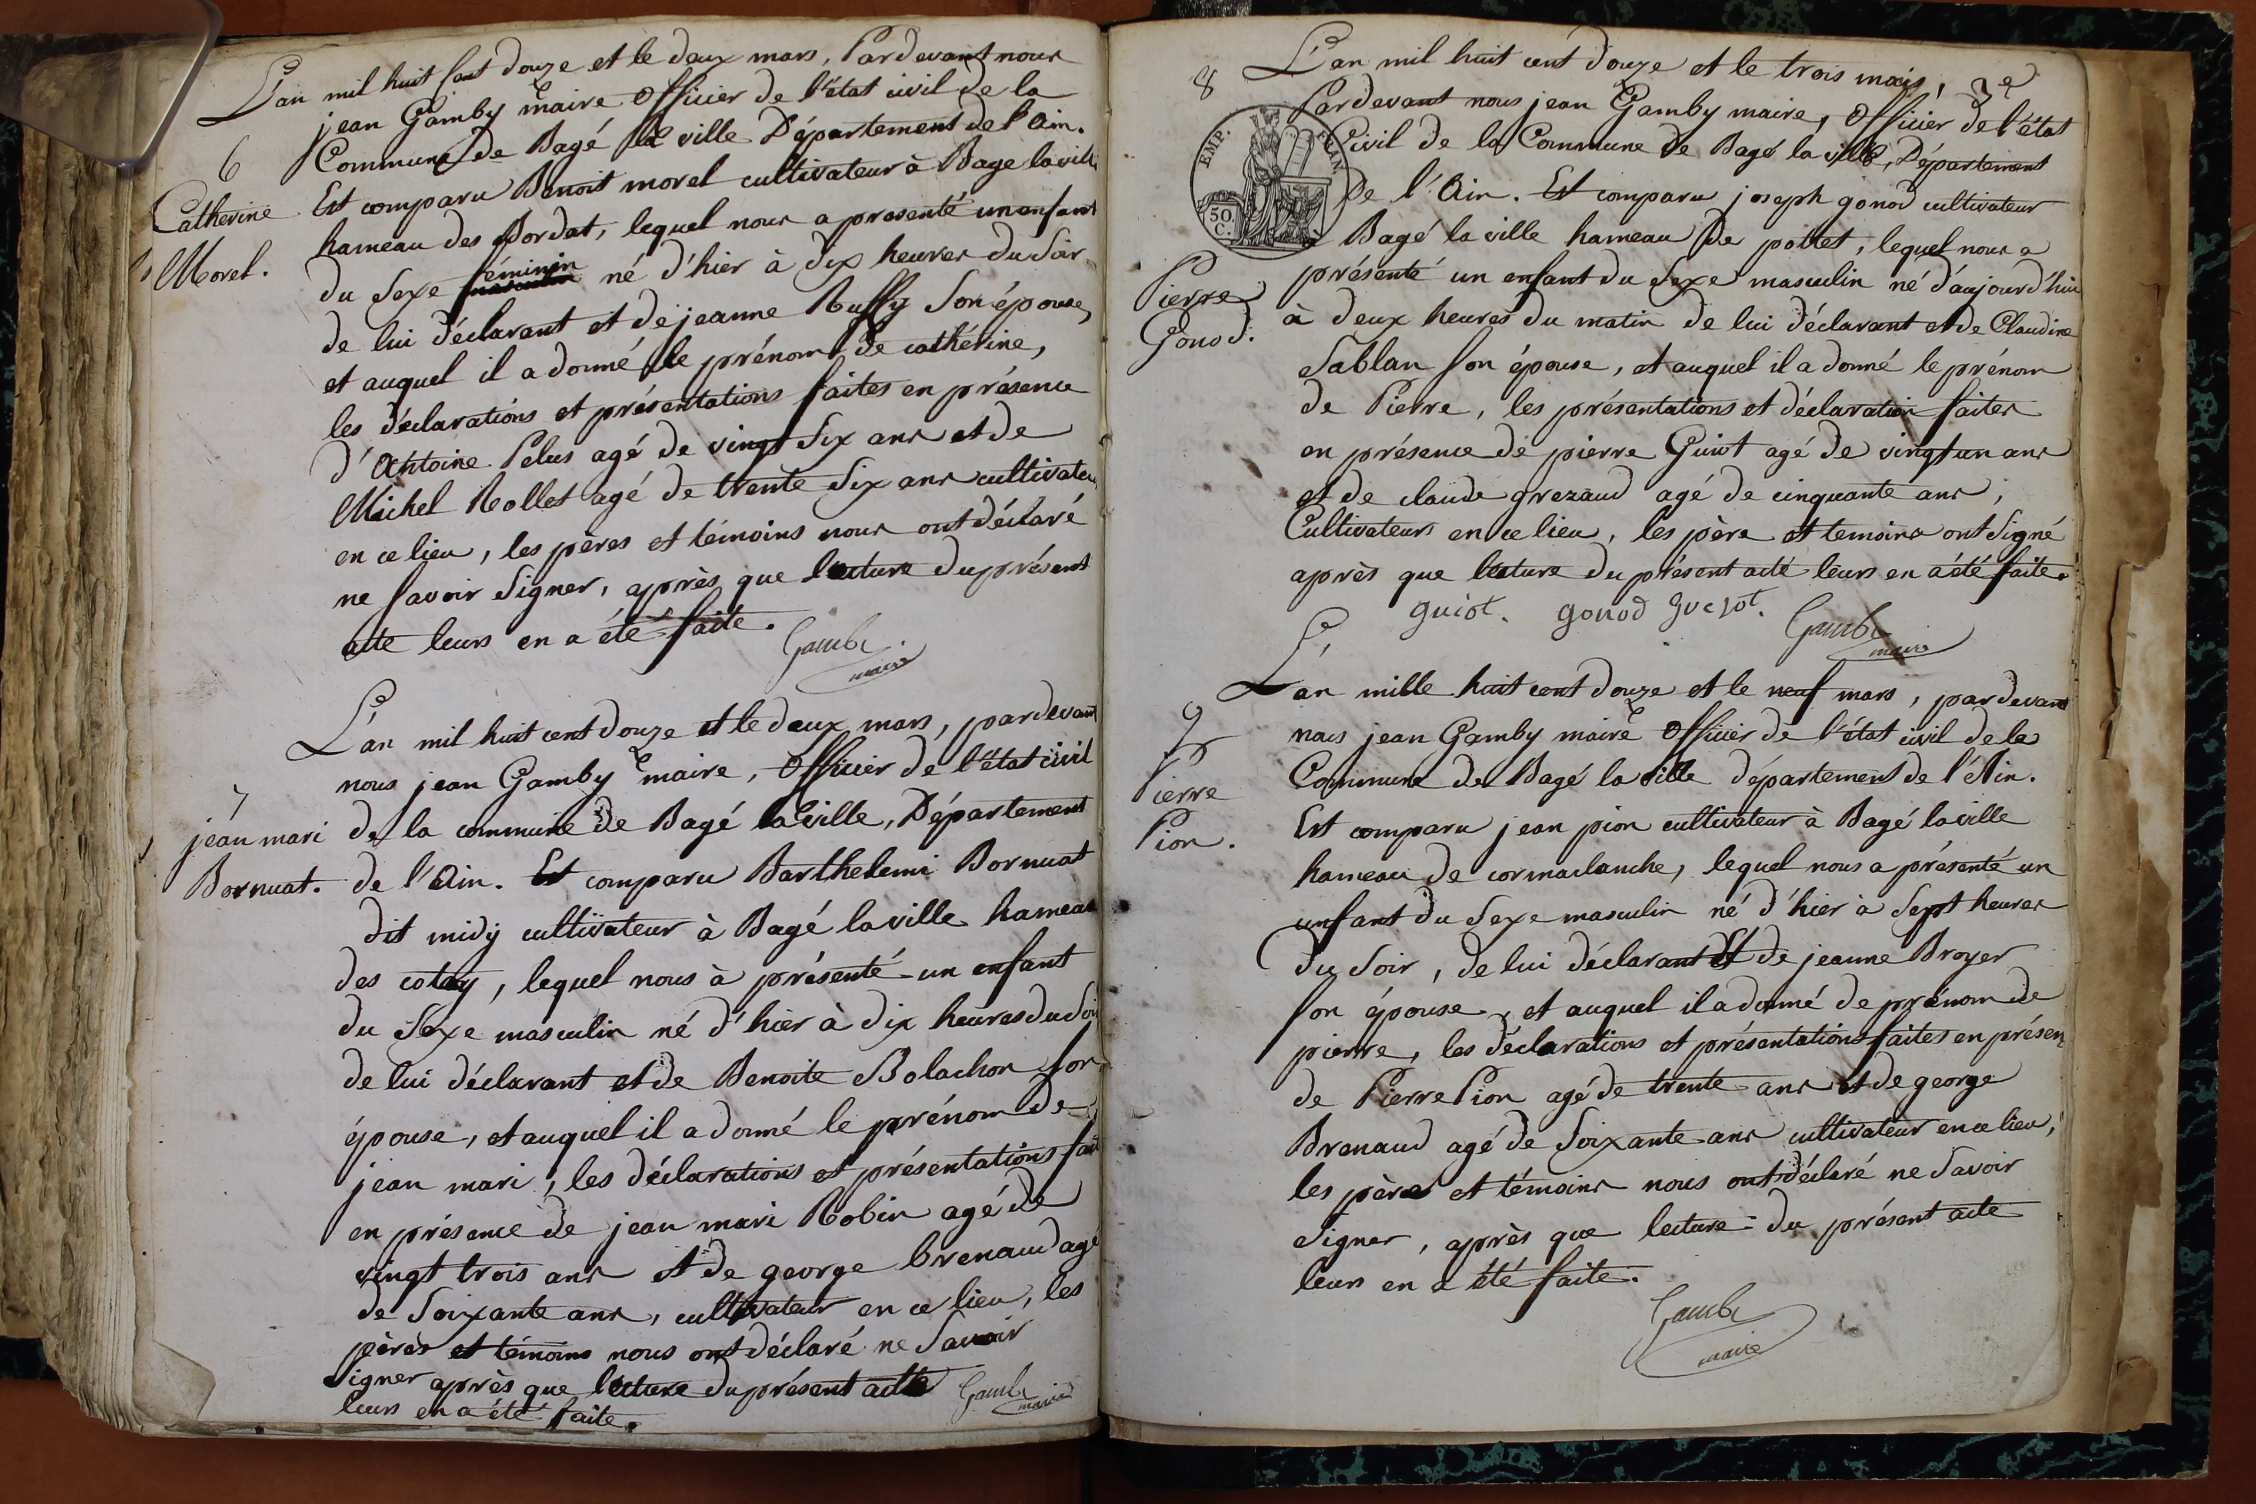 L'an mil huit sent douze et le deux mars, Pardevant nous
jean Gamby maire Officier de l'état civil de la
Commune de Bagé la ville Département de l'Ain.
6
Catherine
Morel.
Est comparu Benoit morel cultivateur à Bage laville
hameau des Bordat, lequel nous a presenté un enfant
du Sexe féminin né d'hier à dix heures du Soir
de lui déclarant et de jeanne Ruffy Son épouse,
et auquel il a donné le prénom de cathérine,
les déclarations et présentations faites en présence
d'Antoine Pelus agé de vingt Six ans et de
Michel Rollet agé de trente Six ans cultivateu
en ce lieu, les pères et témoins nous ont déclaré
ne savoir Signer, après que lecture du présent
acte leurs en a été faite.
Gamby
maire
L'an mil huit cent douze et le deux mars, pardevant
nous jean Gamby maire, Officier de l'état civil
7
jean mari
Bornuat.
de la commune de Bagé la ville, Département
de l'Ain. Est comparu Barthelemi Bornuat
dit midy cultivateur à Bagé la ville hameau
des cotay, lequel nous à présenté un enfant
du Sexe masculin né d'hier à dix heures du Soi
de lui déclarant et de Benoite Bolachon son
épouse, et auquel il a donné le prénom de
jean mari, les déclarations et présentations fai
en présence de jean mari Robin agé de
vingt trois ans et de george brenaud agé
de Soixante ans, cultivateur en ce lieu, les
pères et témoins nous ont déclaré ne Savoir
Signer après que lecture du présent acte
leurs en a été faite.
Gamby
maire
8
L'an mil huit cent douze et le trois mars,
3e
Pardevant nous jean Gamby maire, Officier de l'état
Civil de la Commune de Bagé la ville, Département
EMP. FRAN
50.
C.
De l'Ain. Est comparu joseph gonod cultivateur
a Bagé la ville hameau De pottet, lequel nous a
présenté un enfant du Sexe masculin né d'aujourd'hui
Pierre
Gonod.
à deux heures du matin de lui déclarant et de Claudine
Sablan son épouse, et auquel il a donné le prénom
de Pierre, les présentations et déclaration faites
en présence de pierre Guiot agé de vingt un ans
et de claude grezaud agé de cinquante ans,
Cultivateurs en ce lieu, les père et temoins ont Signé
après que lecture du présent acte leurs en a été faite.
guiot. gonod
Gamby
maire
L'an mille huit cent douze et le neuf mars, pardevant
9
Pierre
Pion.
nous jean Gamby maire Officier de l'état civil de la
Commune de Bagé la ville département de l'Ain.
Est comparu jean pion cultivateur à Bagé la ville
hameau de cormaclanche, lequel nous a présenté un
enfant du Sexe masculin né d'hier à Sept heures
du Soir, de lui déclarant Et de jeanne Broyer
son épouse, et auquel il a donné de prénom de
pierre, les déclarations et présentations faites en présen
de Pierre Pion agé de trente ans et de george
Brenaud agé de Soixante ans cultivateur en ce lieu,
les pères et témoins nous ont déclaré ne Savoir
Signer, après que lecture du présent acte
leurs en a été faite.
Gamby
maire